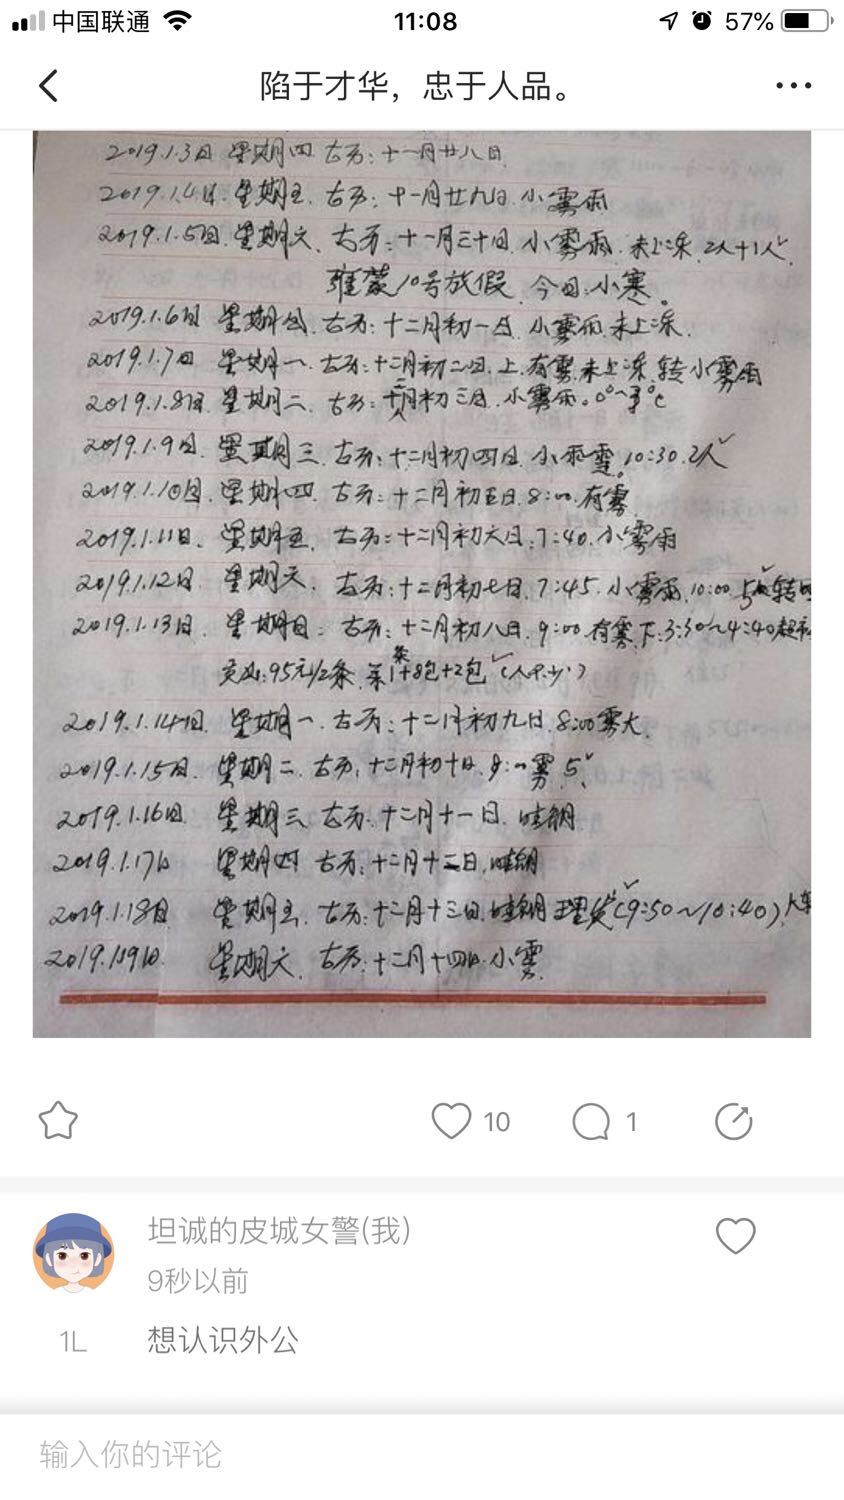 中国联通
11:08
57%
陷于才华，忠于人品。
2019.1.3日 星期四 古历：十一月廿八日.
2019.1.4日. 星期五. 古历：十一月廿九日. 小雾雨
2019.1.5日. 星期六、古历：十一月三十日. 小雾雨. 未上冻. 2人+1人✓
10号放假. 今日：小寒。
2019.1.6日 星期日. 古历：十二月初一日. 小雾雨. 未上冻.
2019.1.7日 星期一. 古历：十二月初二日. 上. 有雾. 未上冻. 转小雾雨
2019.1.8日 星期二. 古历：十二月初三日. 小雾雨。
2019.1.9日. 星期三. 古历：十二月初四日. 小雨雪。10:30. 2人✓
2019.1.10日. 星期四. 古历：十二月初五日. 8:00. 有雾.
2019.1.11日. 星期五. 古历：十二月初六日. 7:40. 小雾雨
2019.1.12日 星期六. 古历：十二月初七日. 7:45. 小雾雨. 10:00. 转
2019.1.13日. 星期日. 古历：十二月初八日. 9:00. 有雾. 下：3:30～4:40超
95元/2条. 1条+8包+2包✓(人不少)
2019.1.14日. 星期一. 古历：十二月初九日. 8:00雾大.
2019.1.15日. 星期二. 古历：十二月初十日. 8:00雾. 5✓
2019.1.16日 星期三. 古历：十二月十一日. 晴朗
2019.1.17日 星期四 古历：十二月十二日. 晴朗
2019.1.18日 星期五. 古历：十二月十三日. 晴朗 理发✓(9:50～10:40)
2019.1.19日. 星期六. 古历：十二月十四日. 小雾.
10
1
坦诚的皮城女警(我)
9秒以前
1L
想认识外公
输入你的评论